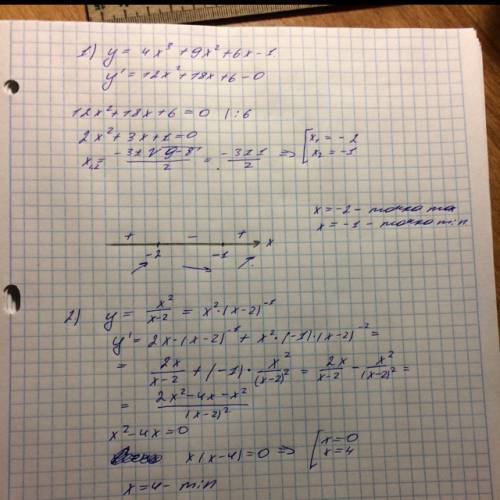 1) y = 4x³ + 9x² + 6x - 1.
y' = 12x² + 18x + 6 - 0
12x² + 18x + 6 = 0 | : 6
2x² + 3x + 1 = 0
x₁,₂ = (-3 ± √(9-8))/2 = (-3 ± 1)/2 => [ x₁ = -2
x₂ = -1
x = -2 - точка max
x = -1 - точка min
+ - + x
-2 -1
2) y = x²/(x-2) = x²·(x-2)⁻¹
y' = 2x·(x-2)⁻¹ + x²·(-1)·(x-2)⁻² =
= 2x/(x-2) + (-1)·x²/(x-2)² = 2x/(x-2) - x²/(x-2)² =
= (2x² - 4x - x²)/(x-2)²
x² - 4x = 0
x(x-4) = 0 => [ x = 0
x = 4
x = 4 - min